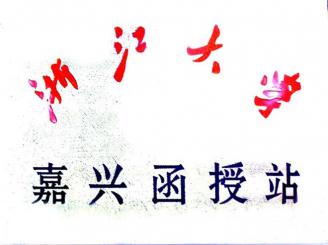 浙江大学
嘉兴函授站